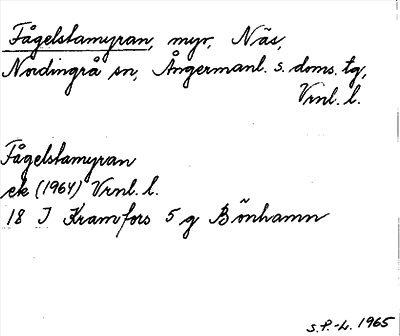 Fågelstamyran, myr, Näs,
Nordingrå sn, Ångermanl. s. doms. tg,
Vrnl. l.
Fågelstamyran
ek (1964) Vrnl. l.
18 I Kramfors 5 g Bönhamn
S.P.-L. 1965